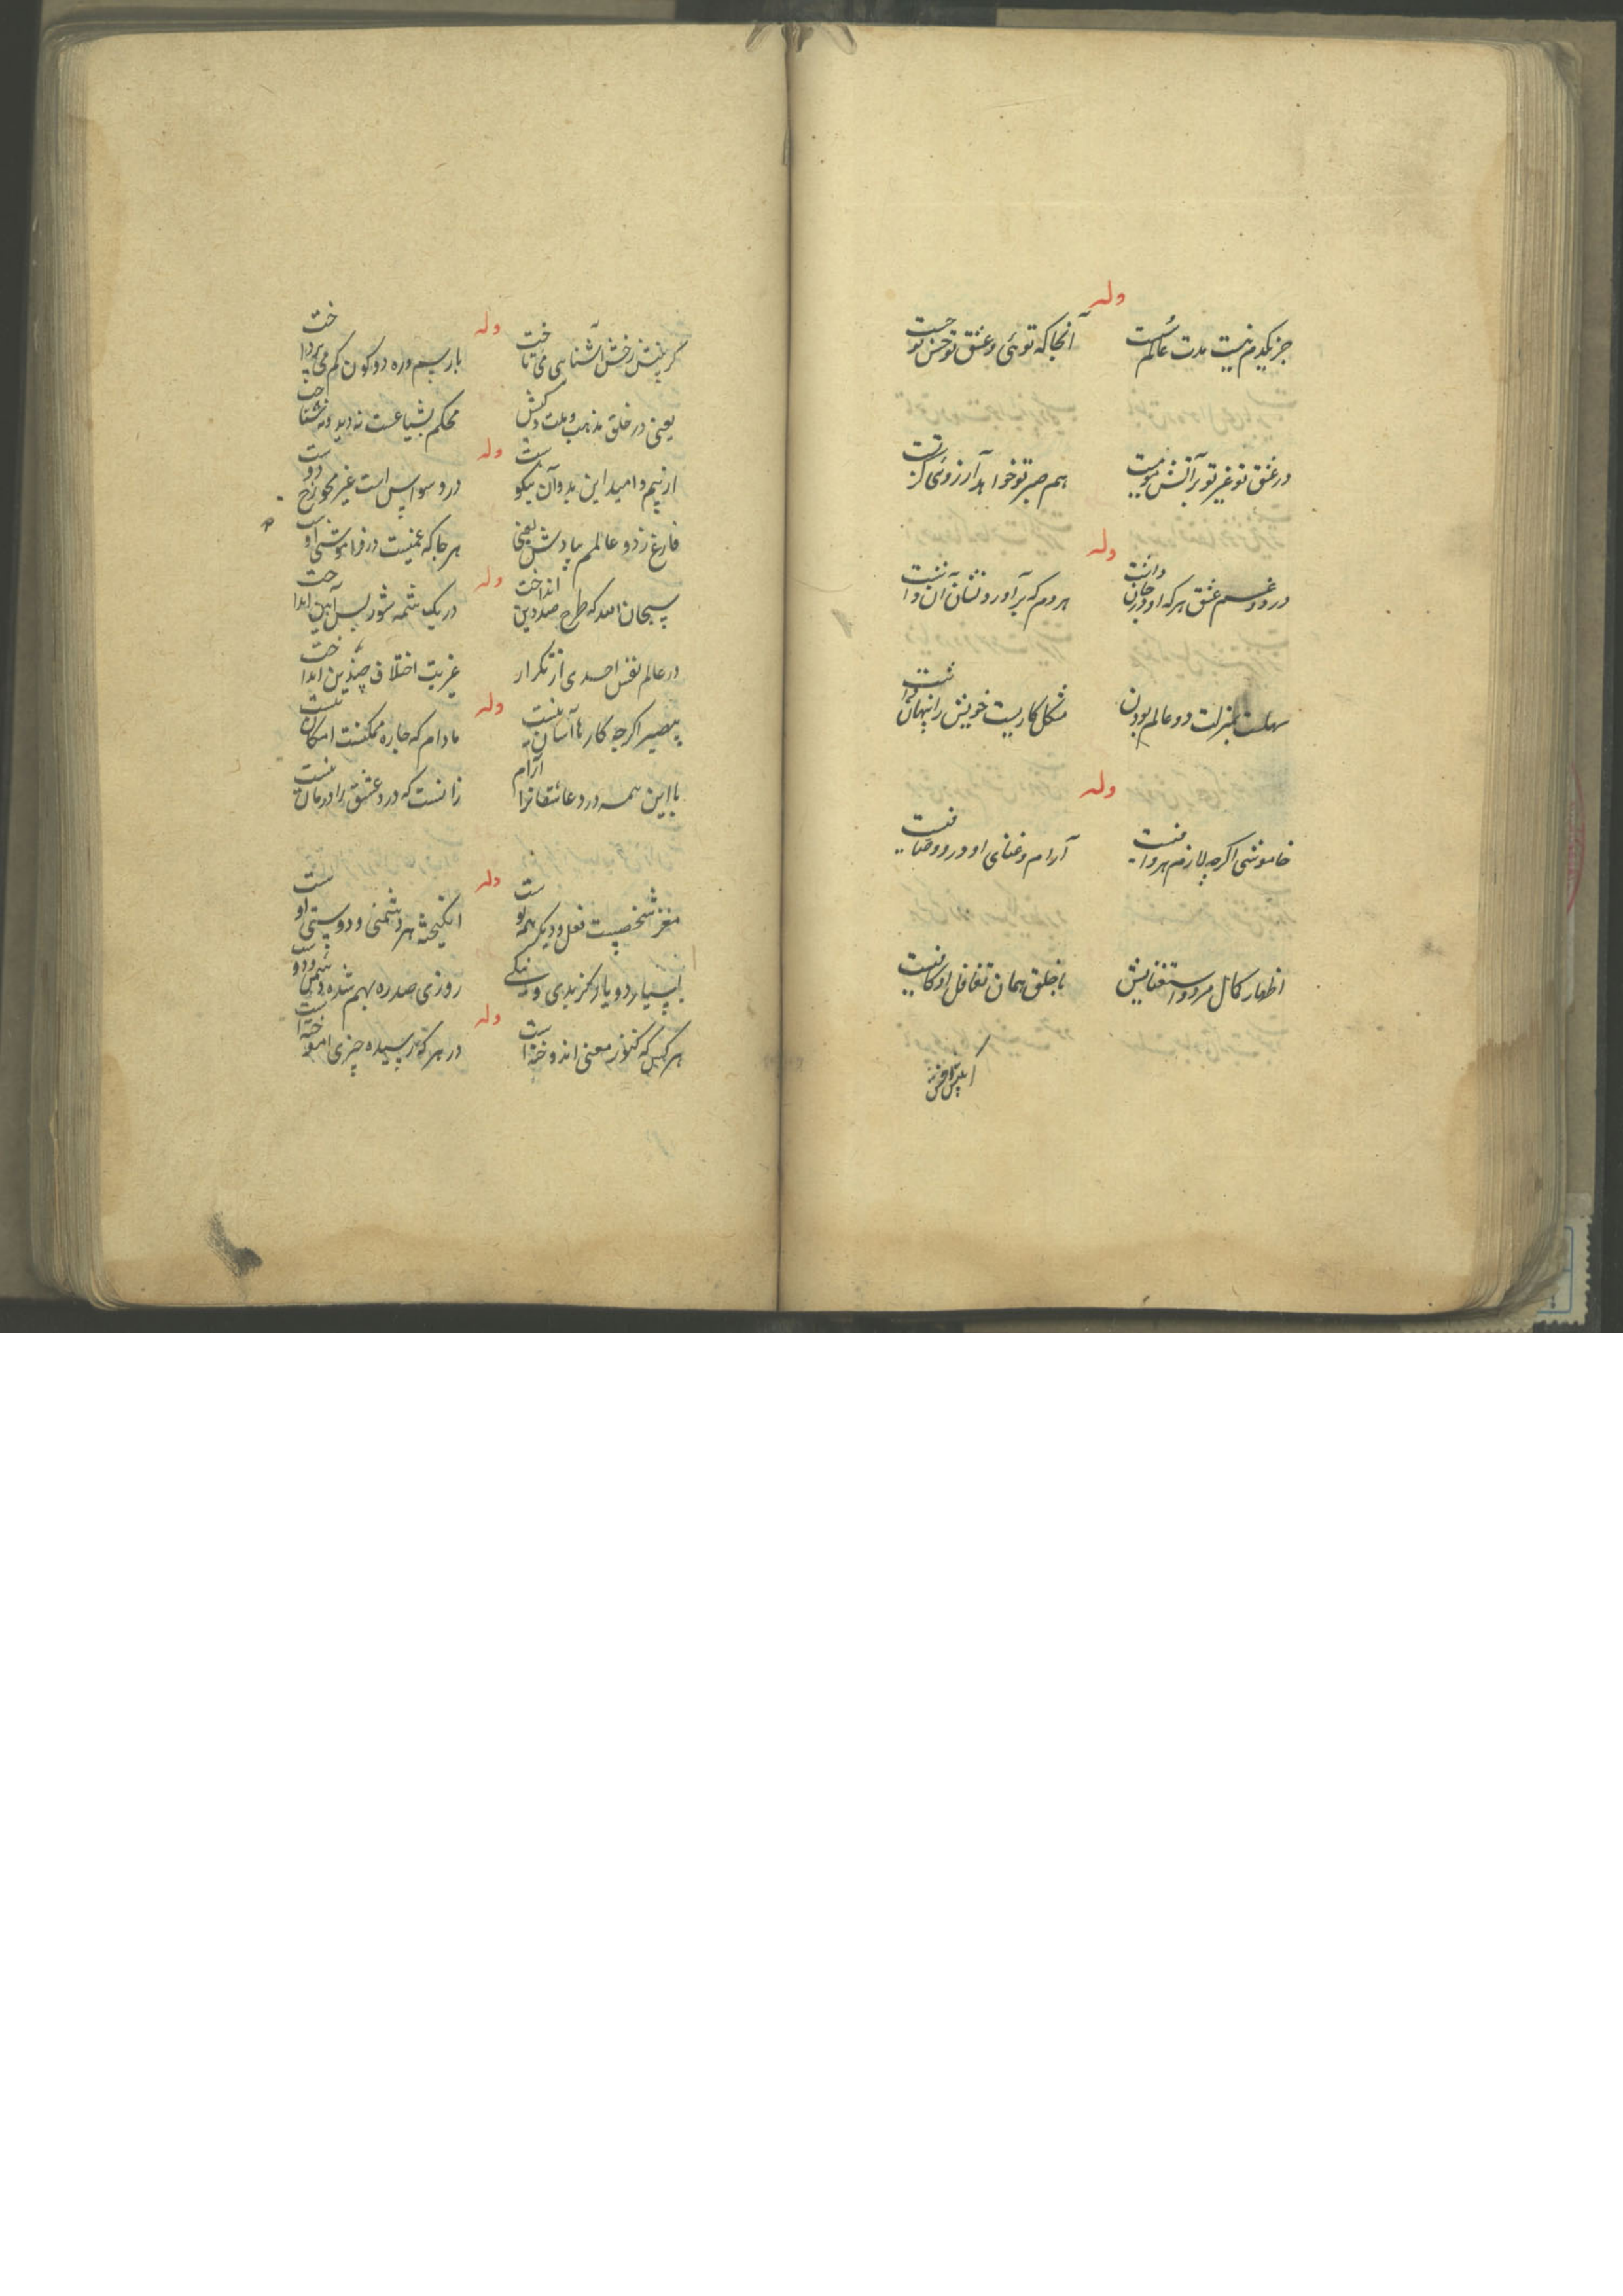 وله
جز یکدم نیست مدت عالم سست
آنجا که توئی و عشق تو حسن تو جست
در عشق تو غیر تو بر آتش
هم صبر تو خواهد آرزوی
وله
درد و غم عشق هر که او در جان دانست
هر دم که برآورد نشان آن دانست
سهلست بمنزلت دو عالم بودن
مشکل کاریست خویش را پنهان
وله
خاموشی اگرچه لازم هر وافیست
آرام و غنای او در و وصافیست
اظهار کمال مرد و استغنایش
با خلق همان تغافل او کافیست
وله
گر بینش رخش آشناهی می تاخت
بار سم و ره دو کون کم می پرداخت
یعنی در خلق مذهب و ملت و کیش
محکم بشیاعست نه دید و نه شناخت
وله
از بیم و امید این بد و آن نیکوست
در وسواس است غیر محو رخ دوست
فارغ ز دو عالمم بیادش یعنی
هر جا که غمیست در فراموشی اوست
وله
سبحان الله که طرح صد دین انداخت
در یک شمه شور بس آیین انداخت
در عالم نفس احدی از تکرار
غریت اختلاف چندین انداخت
وله
بیصیر اگرچه کارها آسان نیست
مادام که چاره ممکنست امکان نیست
با این همه درد عاشقانرا آرام
زانست که درد عشق را درمان نیست
وله
مغز شخصیست فعل و دیگر همه پوست
انگیخته هر دشمنی و دوستی اوست
بسیار دو یار کز بدی و نیکی
روزی صد ره بهم شده دشمن و دوست
وله
هر کس که کنوز معنی اندوخته است
در هر که رسیده چیزی آموخته است